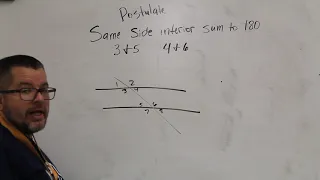 Postulate
Same Side interior sum to 180
3 + 5 4 + 6
1 2
3 4
5 6
7 8